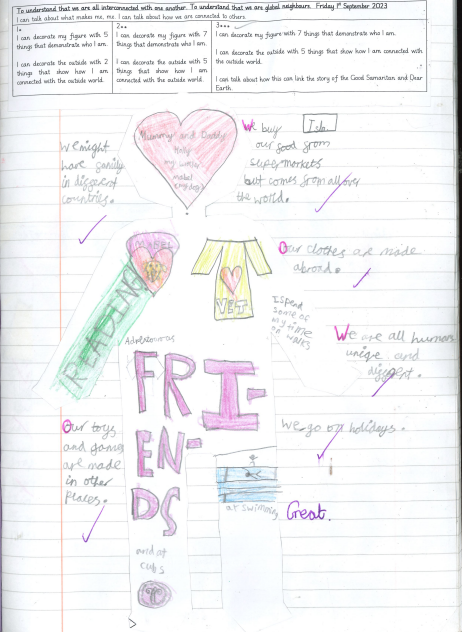 To understand that we are all interconnected with one another. To understand that we are global neighbours. Friday 1st September 2023
I can talk about what makes me, me. I can talk about how we are connected to others
1*
I can decorate my figure with 5
things that demonstrate who I am.
I can decorate the outside with 2
things that show how I am
connected with the outside world.
2**
I can decorate my figure with 7
things that demonstrate who I am.
I can decorate the outside with 5
things that show how I am
connected with the outside world.
3***
I can decorate my figure with 7 things that demonstrate who I am.
I can decorate the outside with 5 things that show how I am connected with
the outside world.
I can talk about how this can link the story of the Good Samaritan and Dear
Earth.
Mummy and Daddy
Holly
my
mabel
We buy
our food from
supermarkets
but comes from all over
the world.
Isla
We might
have family
in different
countries.
MABEL
READING
VET
Our clothes are made
abroad.
I spend
some of
my time
on walks
We are all humans
unique and
different.
FRI-
EN-
DS
We go on holidays.
Our toys
and games
are made
in other
places.
at swimming
Great.
and at
cubs